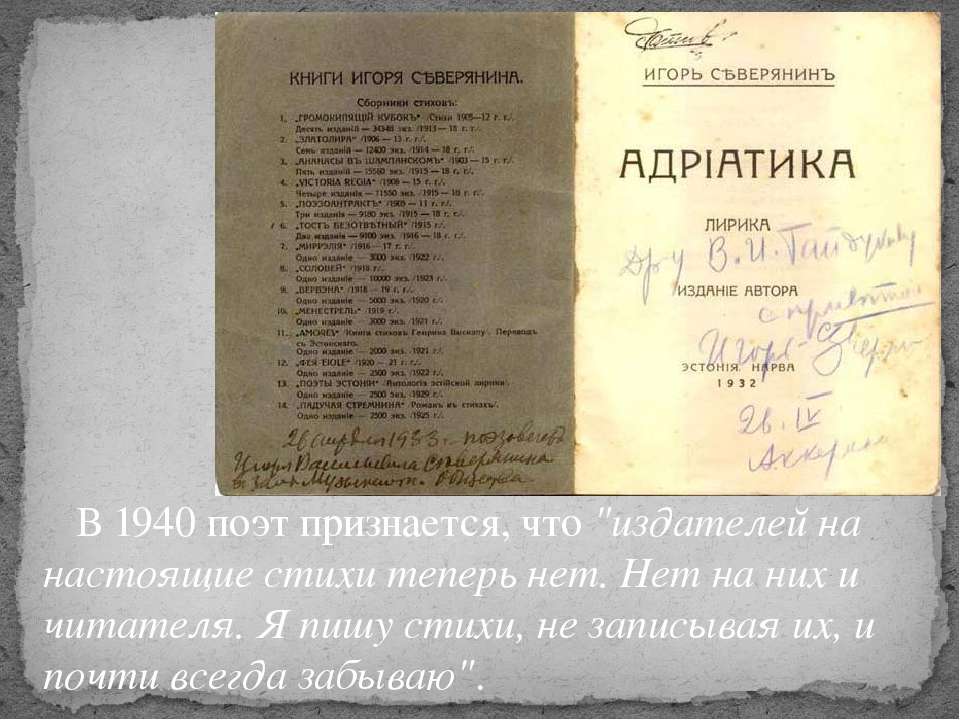 КНИГИ ИГОРЯ СѢВЕРЯНИНА.
Сборники стиховъ:
1. „ГРОМОКИПЯЩІЙ КУБОКЪ" /Стихи 1905—12 г. г./.
Десять изданій — 34348 экз. /1913 — 18 г. г./.
2. „ЗЛАТОЛИРА" /1906 — 13 г. г./.
Семь изданій — 12400 экз. /1914 — 18 г. г./.
3. „АНАНАСЫ ВЪ ШАМПАНСКОМЪ" /1903 — 15 г. г./.
Пять изданій — 15550 экз. /1915 — 18 г. г./.
4. „VICTORIA REGIA" /1908 — 15 г. г./.
Четыре изданія — 11550 экз. /1915 — 18 г. г./.
5. „ПОЭЗОАНТРАКТЪ" /1905 — 11 г. г./.
Три изданія — 9180 экз. /1915 — 18 г. г./.
6. „ТОСТЪ БЕЗОТВѢТНЫЙ" /1915 г./.
Два изданія — 9100 экз. /1916 — 18 г. г./.
7. „МИРРЭЛІЯ" /1916 — 17 г. г./.
Одно изданіе — 3000 экз. /1922 г./.
8. „СОЛОВЕЙ" /1918 г./.
Одно изданіе — 10000 экз. /1923 г./.
9. „ВЕРВЭНА" /1918 — 19 г. г./.
Одно изданіе — 5000 экз. /1920 г./.
10. „МЕНЕСТРЕЛЬ" /1919 г./.
Одно изданіе — 3000 экз. /1921 г./.
11. „AMORES" /Книга стиховъ Генрика Виснапу/. Переводъ
съ Эстонскаго.
Одно изданіе — 2000 экз. /1921 г./.
12. „ФЕЯ EIOLE" /1920 — 21 г. г./.
Одно изданіе — 2500 экз. /1922 г./.
13. „ПОЭТЫ ЭСТОНІИ" /Антологія эстійской лирики/.
Одно изданіе — 2500 экз. /1929 г./.
14. „ПАДУЧАЯ СТРЕМНИНА" /Романъ въ стихахъ/.
Одно изданіе — 2500 экз. /1925 г./.
26 апреля 1933 г.
Игоря Васильевича Северянина
ИГОРЬ СѢВЕРЯНИНЪ
АДРІАТИКА
ЛИРИКА
В. И. Гайдукову
ИЗДАНІЕ АВТОРА
с приветом
Игорь
ЭСТОНІЯ. НАРВА
1932
26. IV
Аккерман
В 1940 поэт признается, что "издателей на
настоящие стихи теперь нет. Нет на них и
читателя. Я пишу стихи, не записывая их, и
почти всегда забываю".